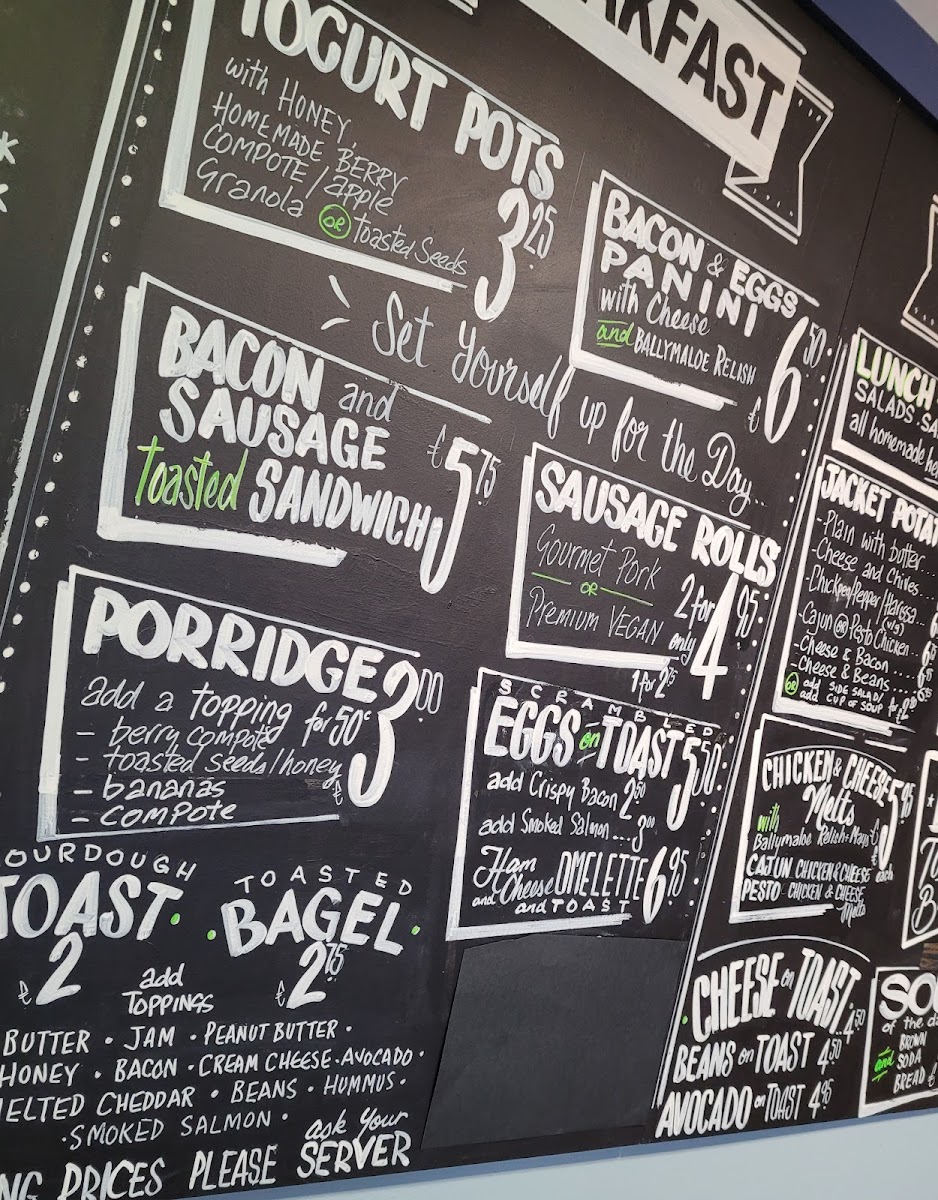 YOGURT POTS
with HONEY,
HOMEMADE BERRY
COMPOTE / apple
Granola OR toasted Seeds
3.25
Set Yourself up for the Day...
BACON and
SAUSAGE
toasted SANDWICH
£5.75
PORRIDGE 3.00
add a topping for 50c
- berry compote
- toasted seeds/honey
- bananas
- compote
£
SOURDOUGH
TOAST
£2
TOASTED
BAGEL
£2.75
add
TOPPINGS
BUTTER • JAM • PEANUT BUTTER •
HONEY • BACON • CREAM CHEESE • AVOCADO •
MELTED CHEDDAR • BEANS • HUMMUS •
• SMOKED SALMON •
ask Your
PRICES PLEASE SERVER
BREAKFAST
BACON & EGGS
PANINI
with Cheese
and BALLYMALOE RELISH
£6.50
SAUSAGE ROLLS
Gourmet Pork
OR
Premium VEGAN
2 for
only 4.95
1 for 2.75
SCRAMBLED
EGGS on TOAST 5.50
add Crispy Bacon 2.50
add Smoked Salmon.... 3.00
Ham
and Cheese OMELETTE 6.95
and TOAST
LUNCH
SALADS. SA
all homemade he
JACKET POTAT
- Plain with butter...
- Cheese and Chives...
- Chickpea/Pepper/Harissa...
(vg)
- Cajun OR Pesto Chicken...
- Cheese & Bacon....
- Cheese & Beans....
OR add SIDE SALAD/
add CUP OF SOUP for £2
CHICKEN & CHEESE
Melts
with
Ballymaloe Relish + Mayo
£5.95
each
CAJUN CHICKEN & CHEESE
PESTO CHICKEN & CHEESE
Melts
CHEESE on TOAST 4.50
BEANS on TOAST 4.50
AVOCADO on TOAST 4.95
SO
of the da
BROWN
and SODA
BREAD £